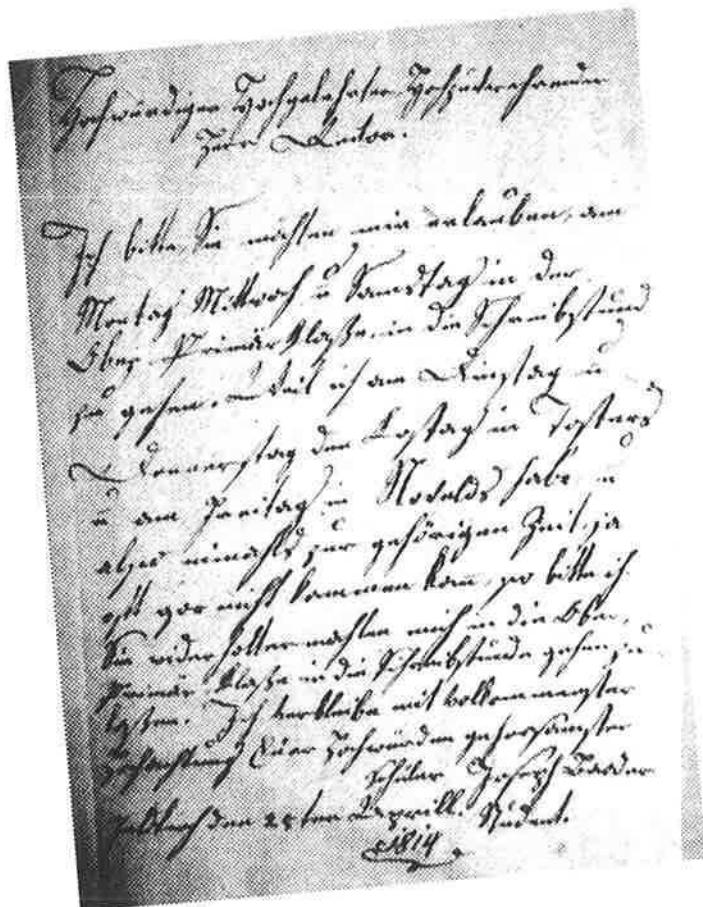 Hochwürdiger Hochgelehrter Hochzuverehrender
Herr Rector.
Ich bitte Sie möchten mir erlauben, am
Montag Mittwoch u Samstag in der
Ober Primär Klaße in die Schreibstund
zu gehen. Weil ich am Dinstag u
Donnerstag den Kostag in Tosters
u am Freitag in Nofels habe u
also niemahls zur gehörigen Zeit, ja
oft gar nicht kommen kann, so bitte ich
Sie wider holter möchten mich in die Ober
Primär Klaße in die Schreibstunde gehen zu
laßen. Ich verbleibe mit vollkommenster
Hochachtung Euer Hochwürden gehorsamster
Schüler Joseph
Feldkirch den ten Aprill. Student.
1814